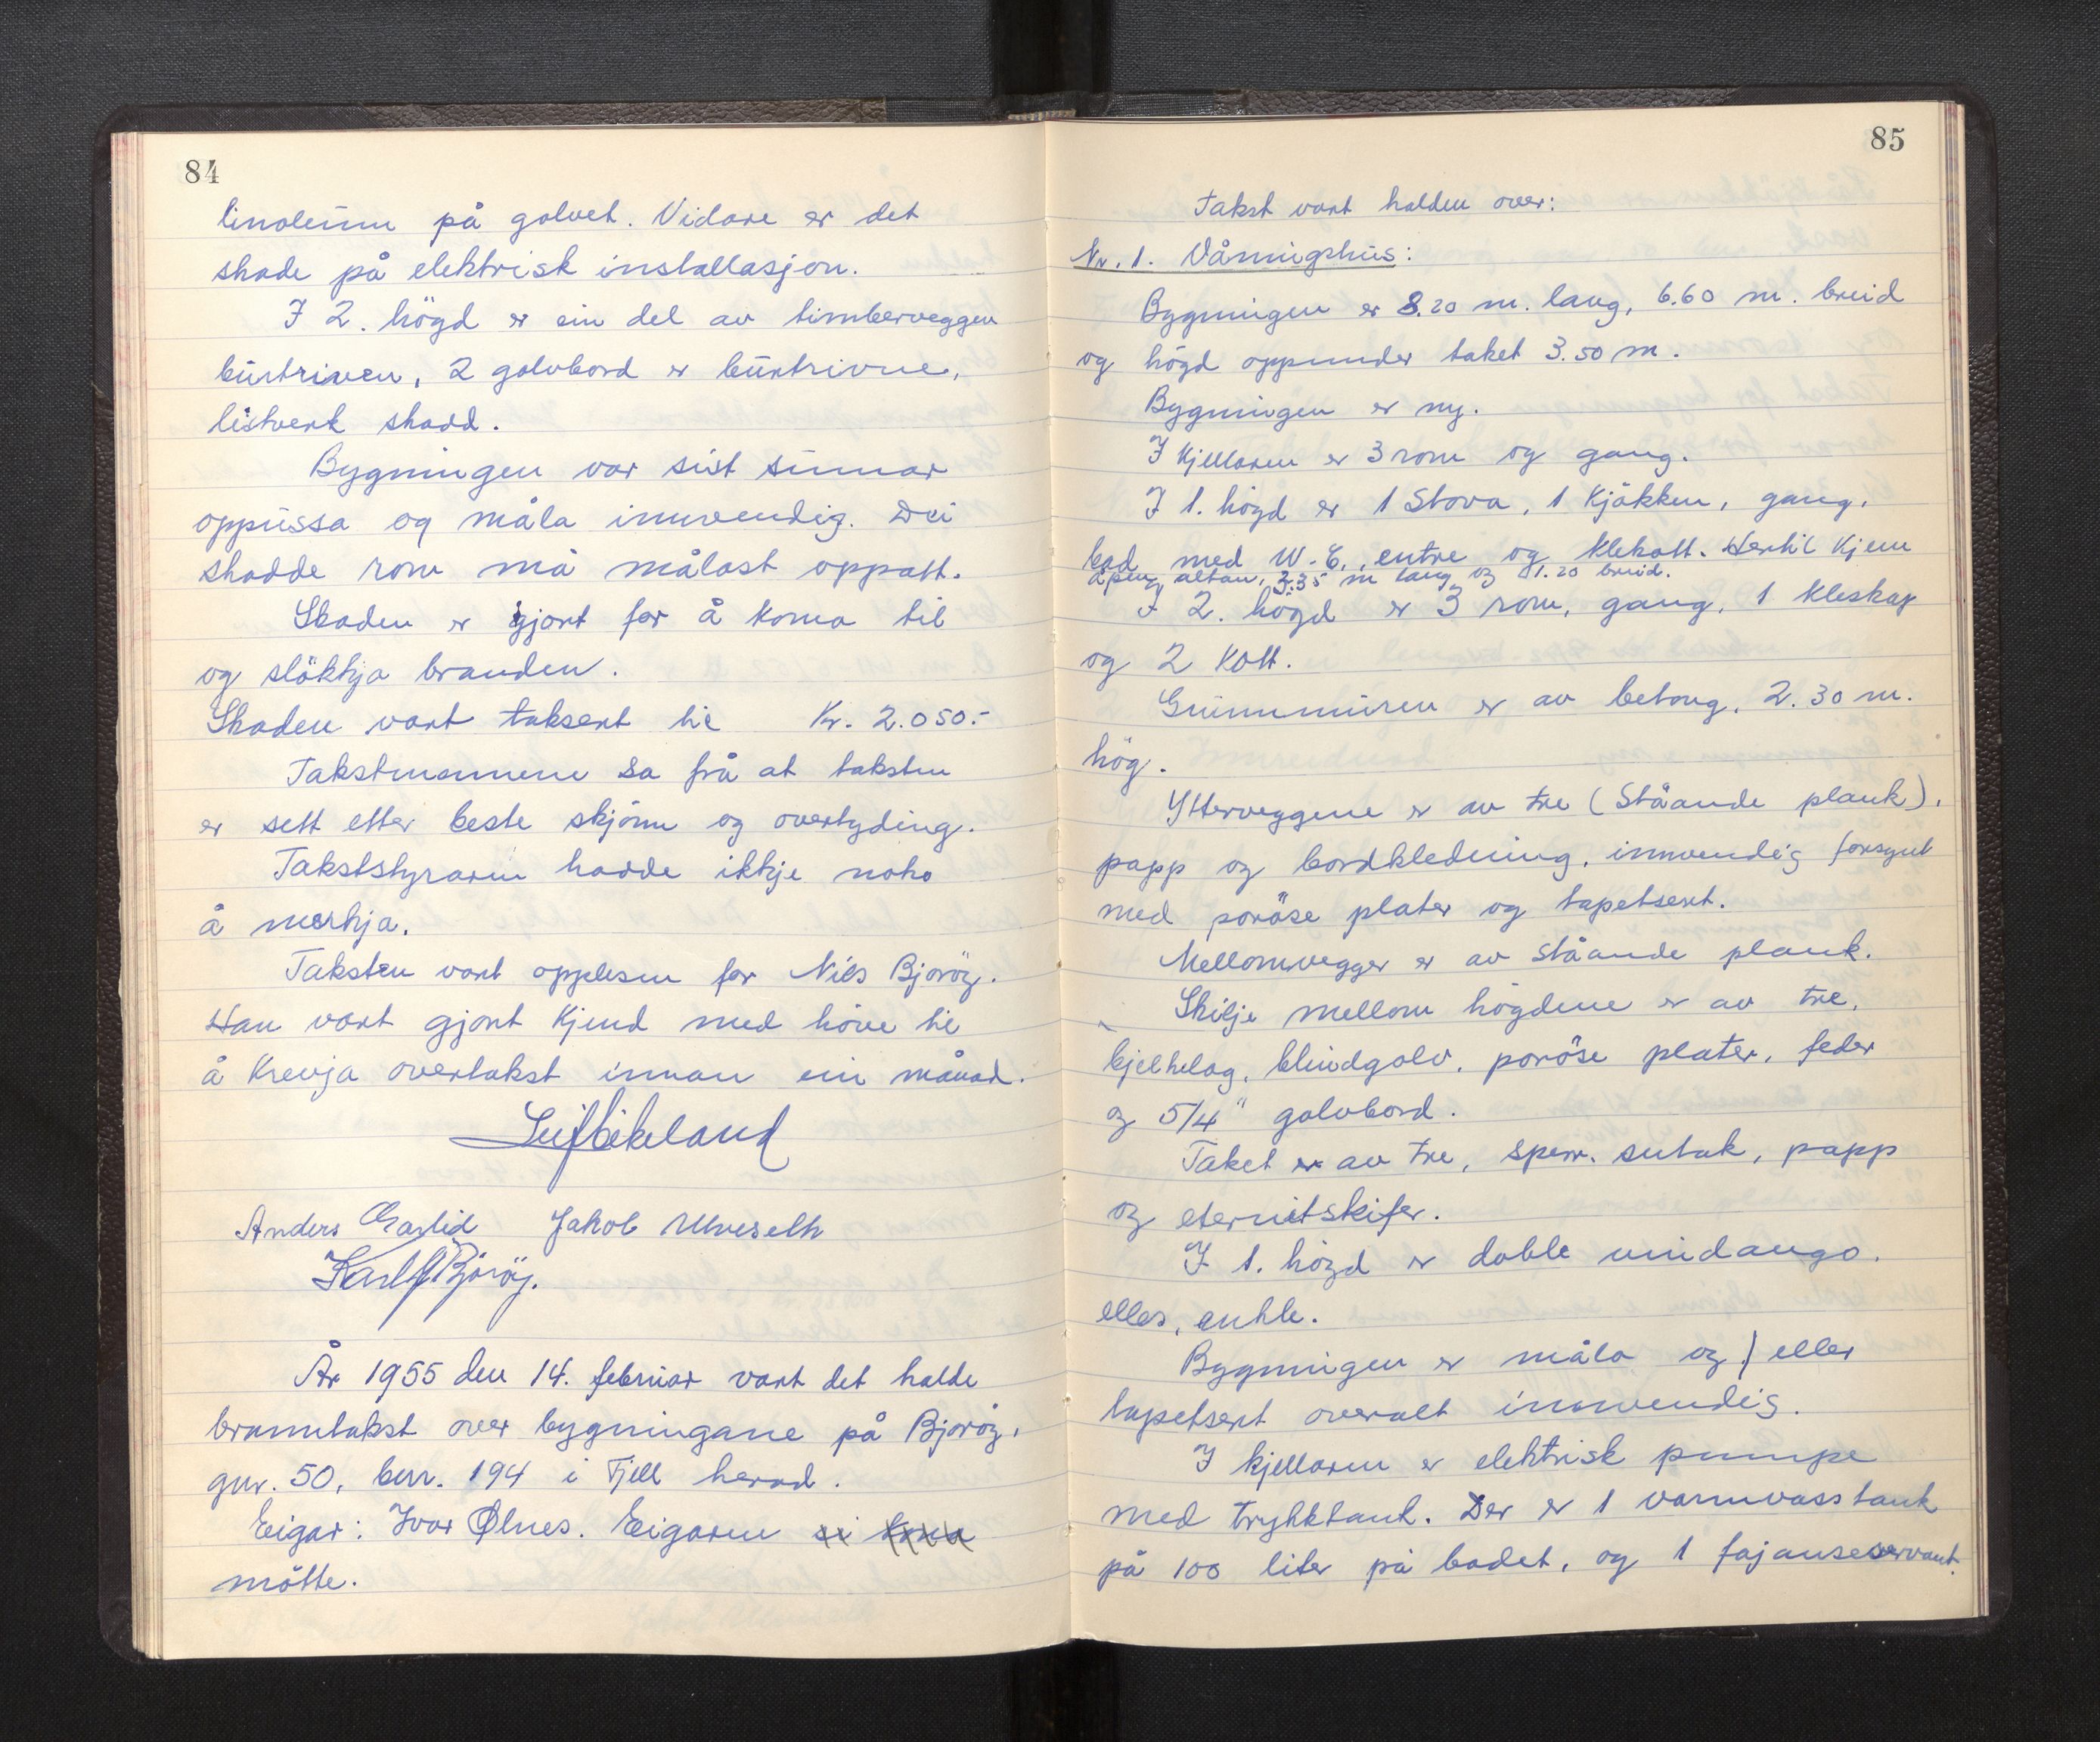 84
linoleum på golvet. Vidare er det
skade på elektrisk installasjon.
I 2. högd er ein del av timberveggen
burtriven, 2 golvbord er burtrivne,
listverk skadd.
Bygningen var sist sumar
oppussa og måla innvendig. Dei
skadde rom må målast oppatt.
Skaden er gjort for å koma til
og slökkja branden.
Skaden vart taksert til Kr. 2.050.-
Takstmennene sa frå at taksten
er sett etter beste skjönn og overtyding.
Takststyraren hadde ikkje noko
å merkja.
Taksten vart opplesen for Nils Bjoröy.
Han vart gjort kjend med höve til
å krevja overtakst innan ein månad.
Leif Eikeland
Anders Jakob Ulveseth
Karl Bjoröy.
År 1955 den 14. februar vart det halde
branntakst over bygningane på Bjoröy,
gnr. 50, bnr. 194 i Fjell herad.
Eigar: Ivar Ølnes. Eigaren
mötte.
85
Takst vart halden over:
Nr. 1. Våningshus:
Bygningen er 8.20 m. lang, 6.60 m. breid
og högd oppunder taket 3.50 m.
Bygningen er ny.
I kjellaren er 3 rom og gang.
I 1. högd er 1 stova, 1 kjökken, gang,
bad med W.C., entre og klekott. Hertil kjem
åpen altan, 3.35 m lang og 1.20 breid.
I 2. högd er 3 rom, gang, 1 kleskap
og 2 kott.
Grunnmuren er av betong, 2.30 m.
hög.
Ytterveggene er av tre (ståande plank),
papp og bordkledning, innvendig forsynt
med poröse plater og tapetsert.
Mellomvegger er av ståande plank.
Skilje mellom högdene er av tre,
bjelkelag, blindgolv, poröse plater, feder
og 5/4" golvbord.
Taket er av tre, sperr, sutak, papp
og eternitskifer.
I 1. högd er doble vindaugo,
elles, enkle.
Bygningen er måla og / eller
tapetsert overalt innvendig.
I kjellaren er elektrisk pumpe
med trykktank. Der er 1 varmvasstank
på 100 liter på badet, og 1 fajanseservant.